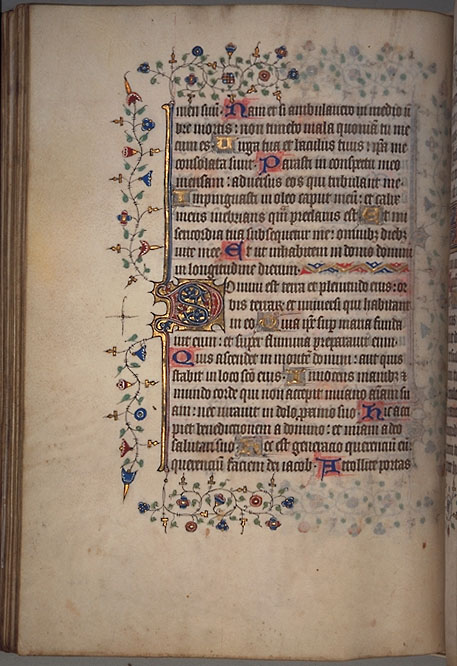 men suū. Nam et si ambulauero in medio ū
bre mortis : non timebo mala quoniā tu me
cum es. Uirga tua et baculus tuus : ip̄a me
consolata sunt. Parasti in conspectu meo
mensam : aduersus eos qui tribulant me.
Impinguasti in oleo caput meū : et calix
meus inebrians quā preclarus est Et mi
sericordia tua subsequetur me : omnibȝ diebȝ
uite mee Et ut inhabitem in domo domini
in longitudine dierum.
Domini est terra et plenitudo eius : or
bis terraꝝ et uniuersi qui habitant
in eo. Quia ip̄e sup maria funda
uit eum : et super flumina preparauit eum
Quis ascendet in montē domini : aut quis
stabit in loco sc̄o eius. Innocens manibȝ &
mundo corde qui non accepit in uano aīam su
am : nec iurauit in dolo proximo suo Hic acci
piet benedictionem a domino : et miam a deo
salutari suo Hec est generacio querenciū eū
querencium faciem dei iacob. Attollite portas